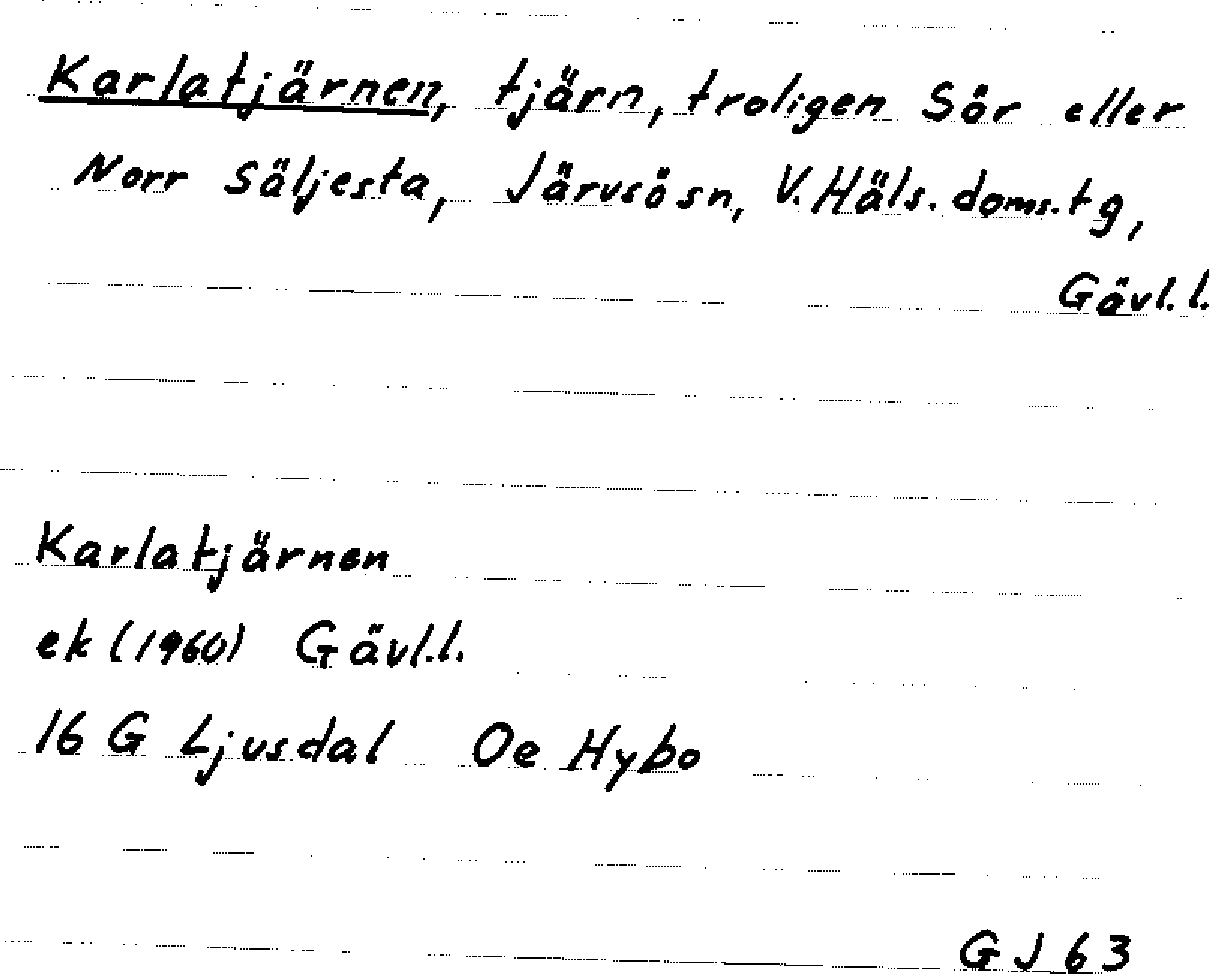 Karlatjärnen, tjärn, troligen Sör eller
Norr Säljesta, Järvsösn, V. Häls. doms. tg,
Gävl. l.
Karlatjärnen
ek (1960) Gävl.l.
16 G Ljusdal Oe Hybo
GJ 63